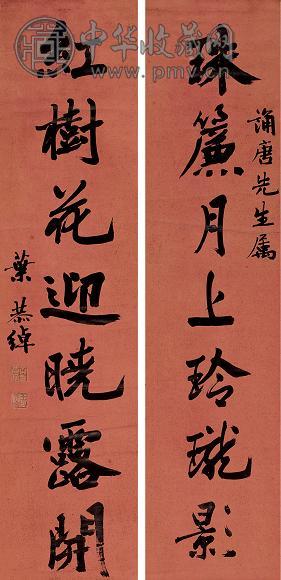 中华收藏网
www.pmv.cn
珠簾月上玲瓏影
誦唐先生属
紅樹花迎曉露開
葉恭綽